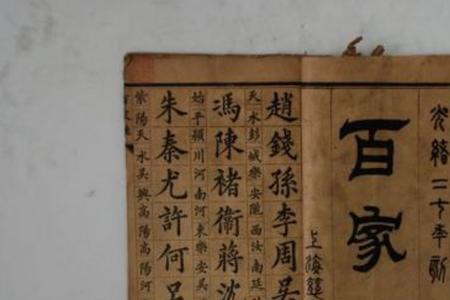 光緒二十年新
百家
上海
趙錢孫李周吳
天水彭城樂安隴西汝南延
馮陳褚衞蔣沈
始平潁川河南河東樂安吳
朱秦尤許何呂
紫陽天水吳興高陽高陽河